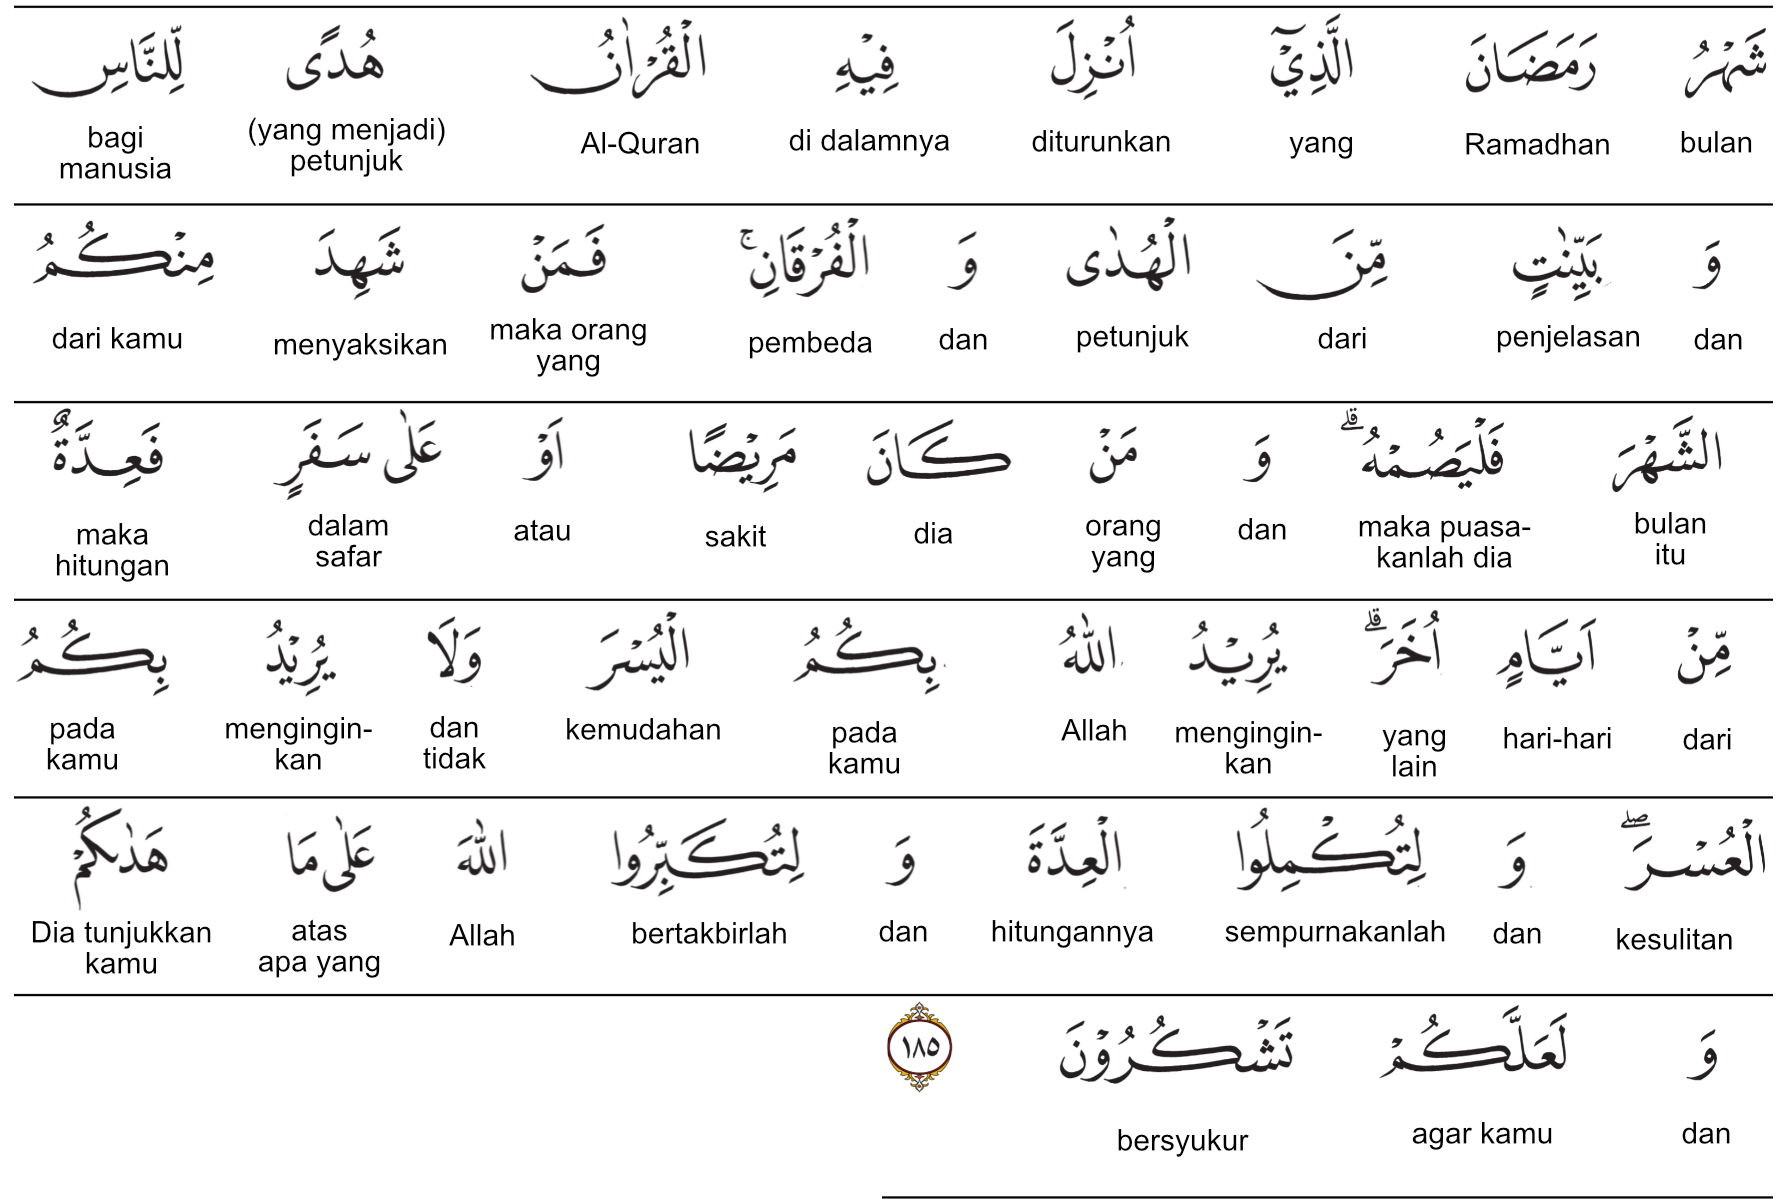 شَهْرُ رَمَضَانَ الَّذِيْٓ اُنْزِلَ فِيْهِ الْقُرْاٰنُ هُدًى لِّلنَّاسِ
bulan Ramadhan yang diturunkan di dalamnya Al-Quran (yang menjadi) petunjuk bagi manusia
وَ بَيِّنٰتٍ مِّنَ الْهُدٰى وَ الْفُرْقَانِۚ فَمَنْ شَهِدَ مِنْكُمُ
dan penjelasan dari petunjuk dan pembeda maka orang yang menyaksikan dari kamu
الشَّهْرَ فَلْيَصُمْهُۗ وَ مَنْ كَانَ مَرِيْضًا اَوْ عَلٰى سَفَرٍ فَعِدَّةٌ
bulan itu maka puasa-kanlah dia dan orang yang dia sakit atau dalam safar maka hitungan
مِّنْ اَيَّامٍ اُخَرَۗ يُرِيْدُ اللّٰهُ بِكُمُ الْيُسْرَ وَلَا يُرِيْدُ بِكُمُ
dari hari-hari yang lain mengingin-kan Allah pada kamu kemudahan dan tidak mengingin-kan pada kamu
الْعُسْرَۖ وَ لِتُكْمِلُوا الْعِدَّةَ وَ لِتُكَبِّرُوا اللّٰهَ عَلٰى مَا هَدٰىكُمْ
kesulitan dan sempurnakanlah hitungannya dan bertakbirlah Allah atas apa yang Dia tunjukkan kamu
وَ لَعَلَّكُمْ تَشْكُرُوْنَ ١٨٥
dan agar kamu bersyukur